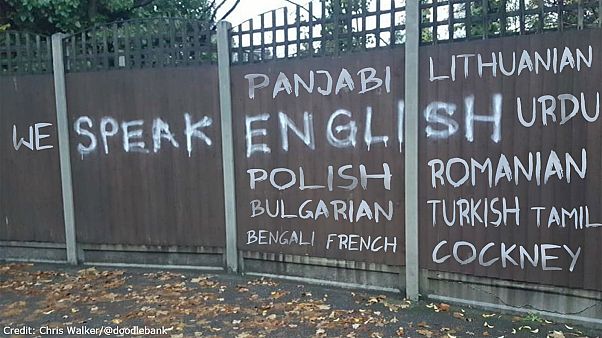 PANJABI LITHUANIAN
WE SPEAK ENGLISH URDU
POLISH ROMANIAN
BULGARIAN TURKISH TAMIL
BENGALI FRENCH COCKNEY
Credit: Chris Walker/@doodlebank